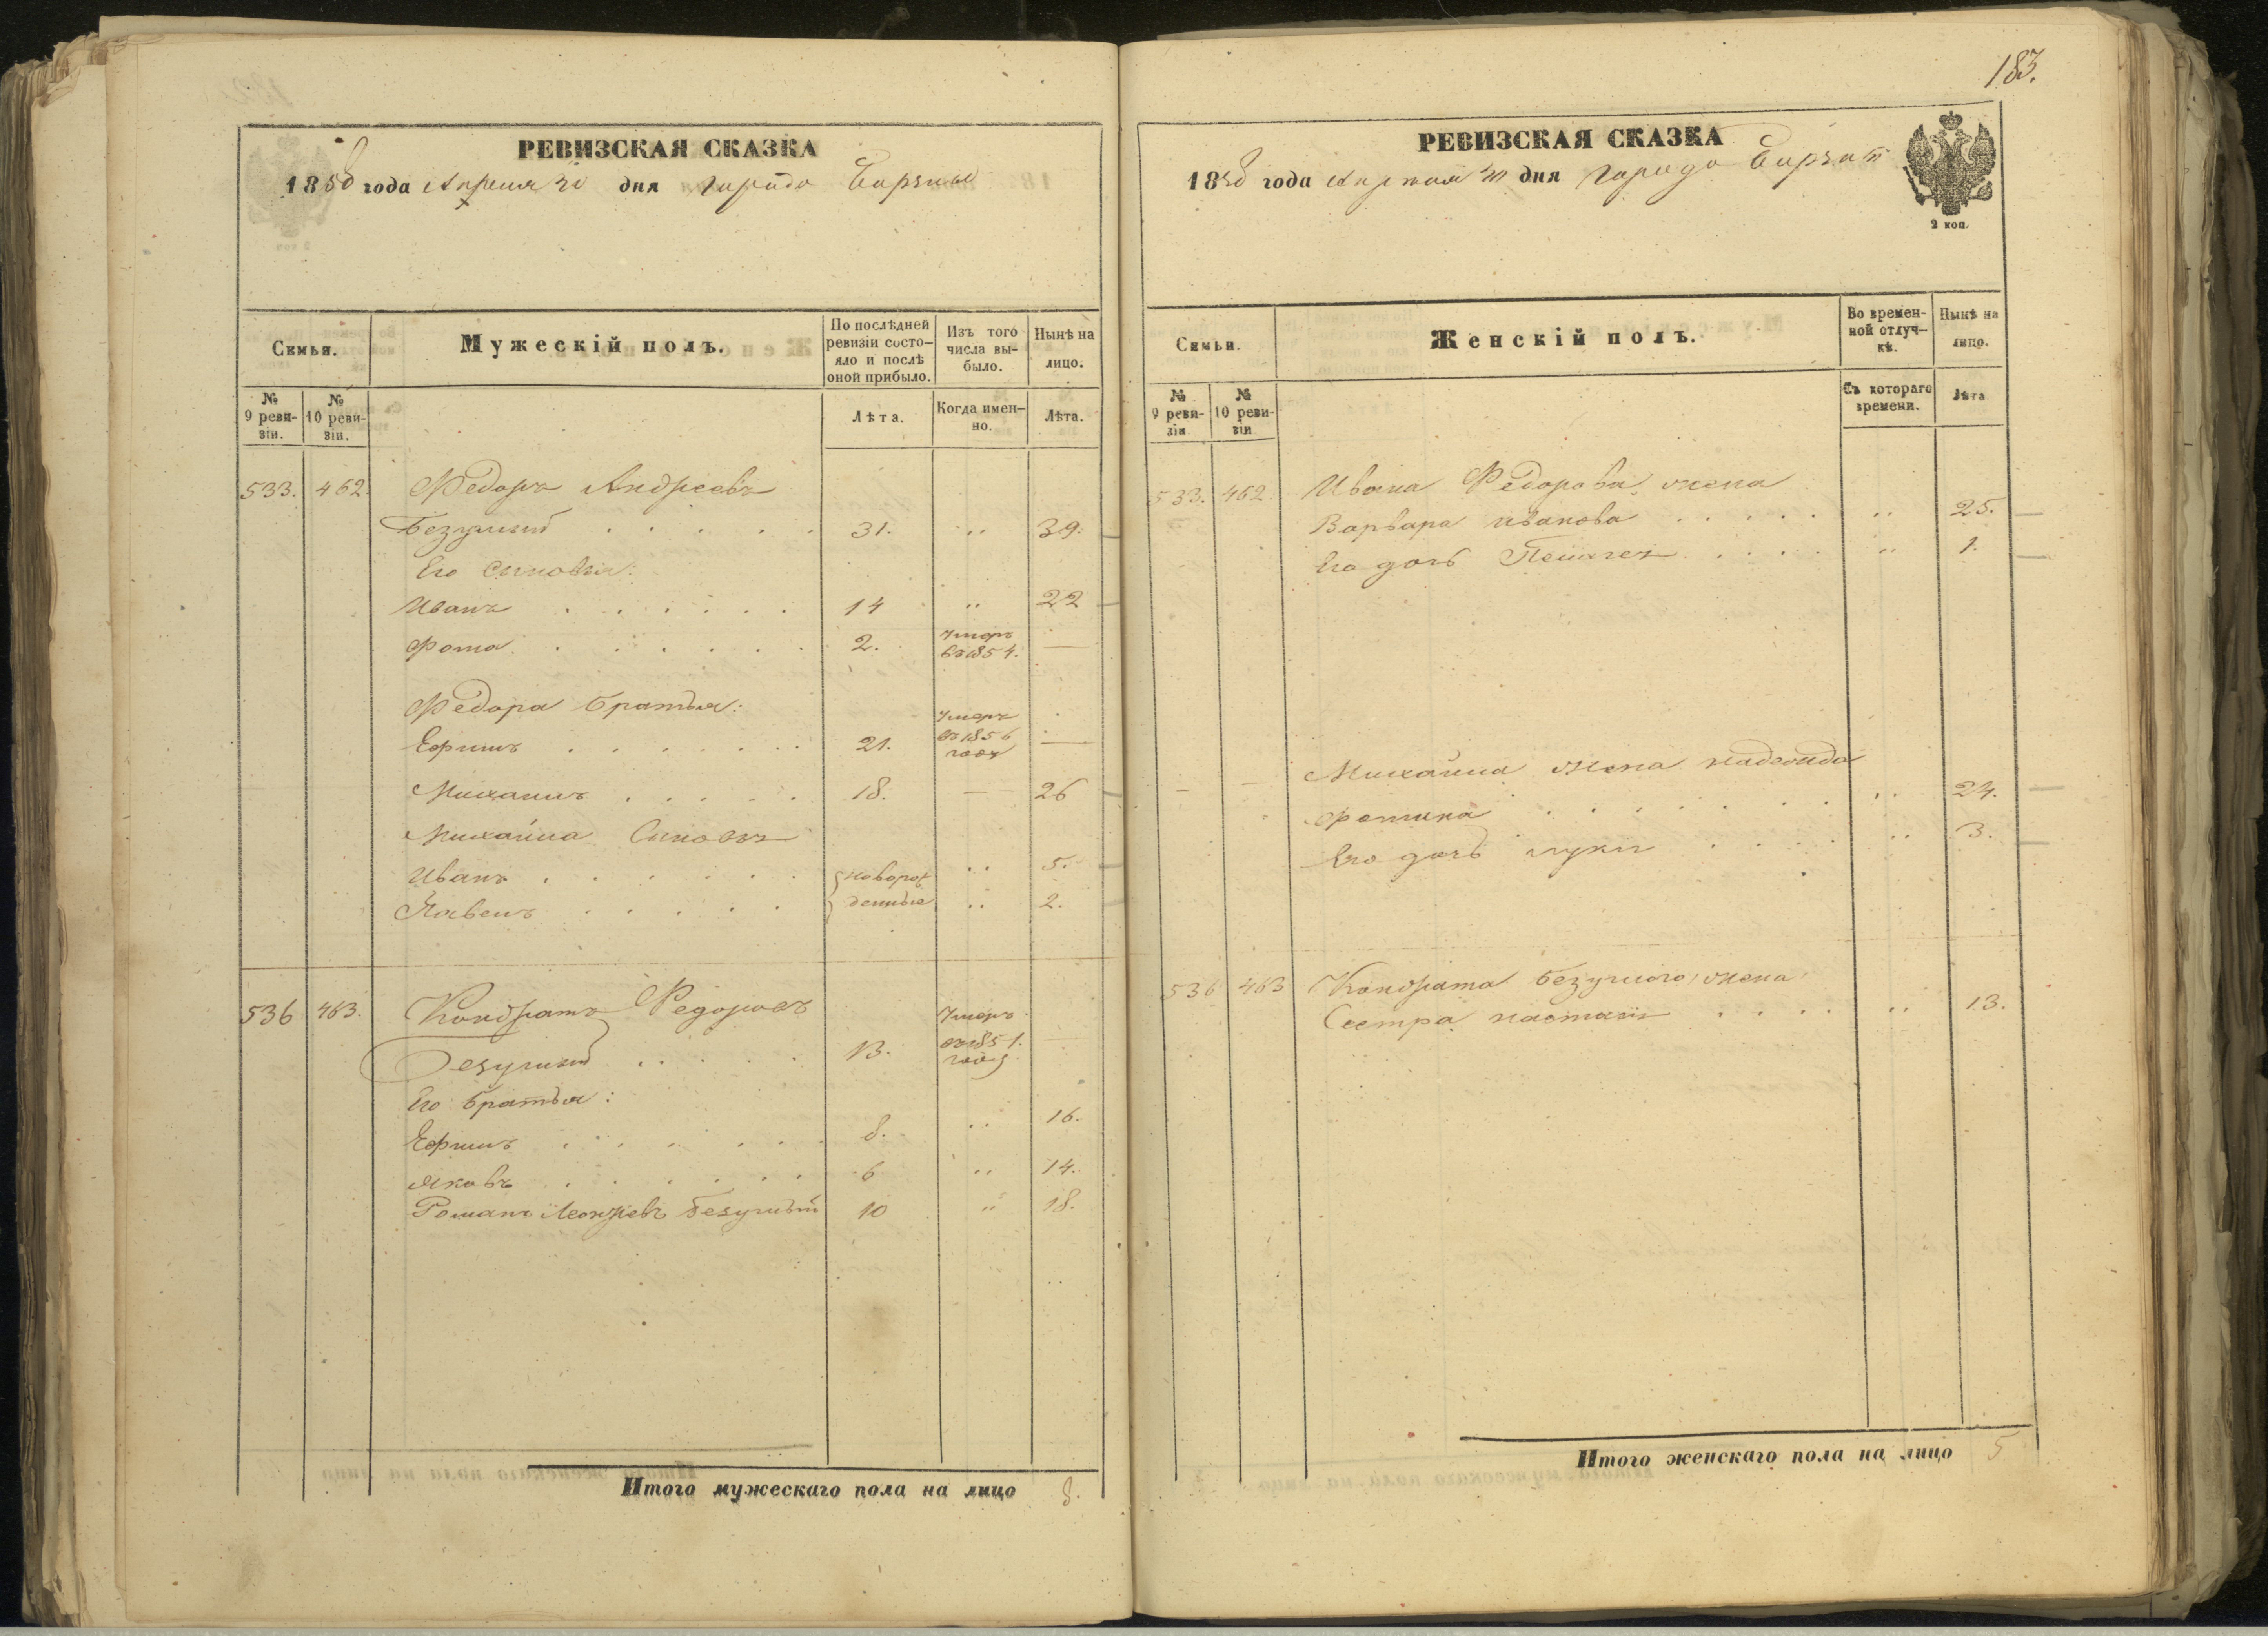 183.
РЕВИЗСКАЯ СКАЗКА
1858 года Апреля 30 дня города Борзны
Семьи.
Мужескій полъ.
По послѣдней ревизіи состо-
яло и послѣ оной прибыло.
Изъ того числа вы-
было.
Нынѣ на лицо.
№ 9 реви-
зіи.
№ 10 реви-
зіи.
Лѣта.
Когда имен-
но.
Лѣта.
533. 462. Федоръ Андреевъ
Безумный . . . . . 31. „ 39.
Его сыновья:
Иванъ . . . . . . 14 „ 22
Фома . . . . . . . 2. Умеръ въ 1854. —
Федора братья:
Ефимъ . . . . . . . 21. Умеръ въ 1856 году —
Михаилъ . . . . . 18. — 26
Михайла Сыновья
Иванъ . . . . . . новорож „ 5.
Павелъ . . . . . денные „ 2.
536 463. Кондратъ Федоровъ
Безумный . . . . . 13. Умеръ въ 1851. году —
Его братья:
Ефимъ . . . . . . 8. „ 16.
Яковъ . . . . . . 6 „ 14.
Романъ Леонтіевъ Безумный 10 „ 18.
Итого мужескаго пола на лицо 8.
РЕВИЗСКАЯ СКАЗКА
1858 года Апреля 30 дня города Борзны
2 коп.
Семьи.
Женскій полъ.
Во времен-
ной отлуч-
кѣ.
Нынѣ на лицо.
№ 9 реви-
зіи
№ 10 реви-
зіи
Съ котораго времени.
Лѣта
533. 462. Ивана Федорова жена
Варвара Иванова . . . . . „ 25.
Его дочь . . . . „ 1.
Михайла жена Надежда
Фомина . . . . . . . „ 24.
Его дочь . . . . „ 3.
536 463 Кондрата Безумного жена
Сестра Настасія . . . . „ 13.
Итого женскаго пола на лицо 5